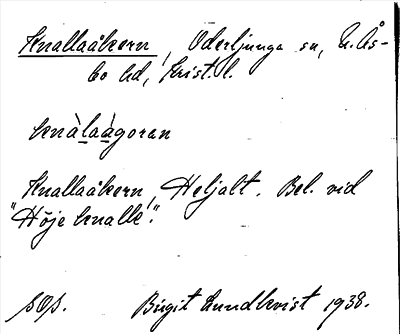 Knallaåkern, Oderljunga sn, N. Ås-
bo hd, Krist. l.
knàlaágoran
Knallaåkern, Heljalt. Bel. vid
"Höje knalle".
Birgit Lundkvist 1938.